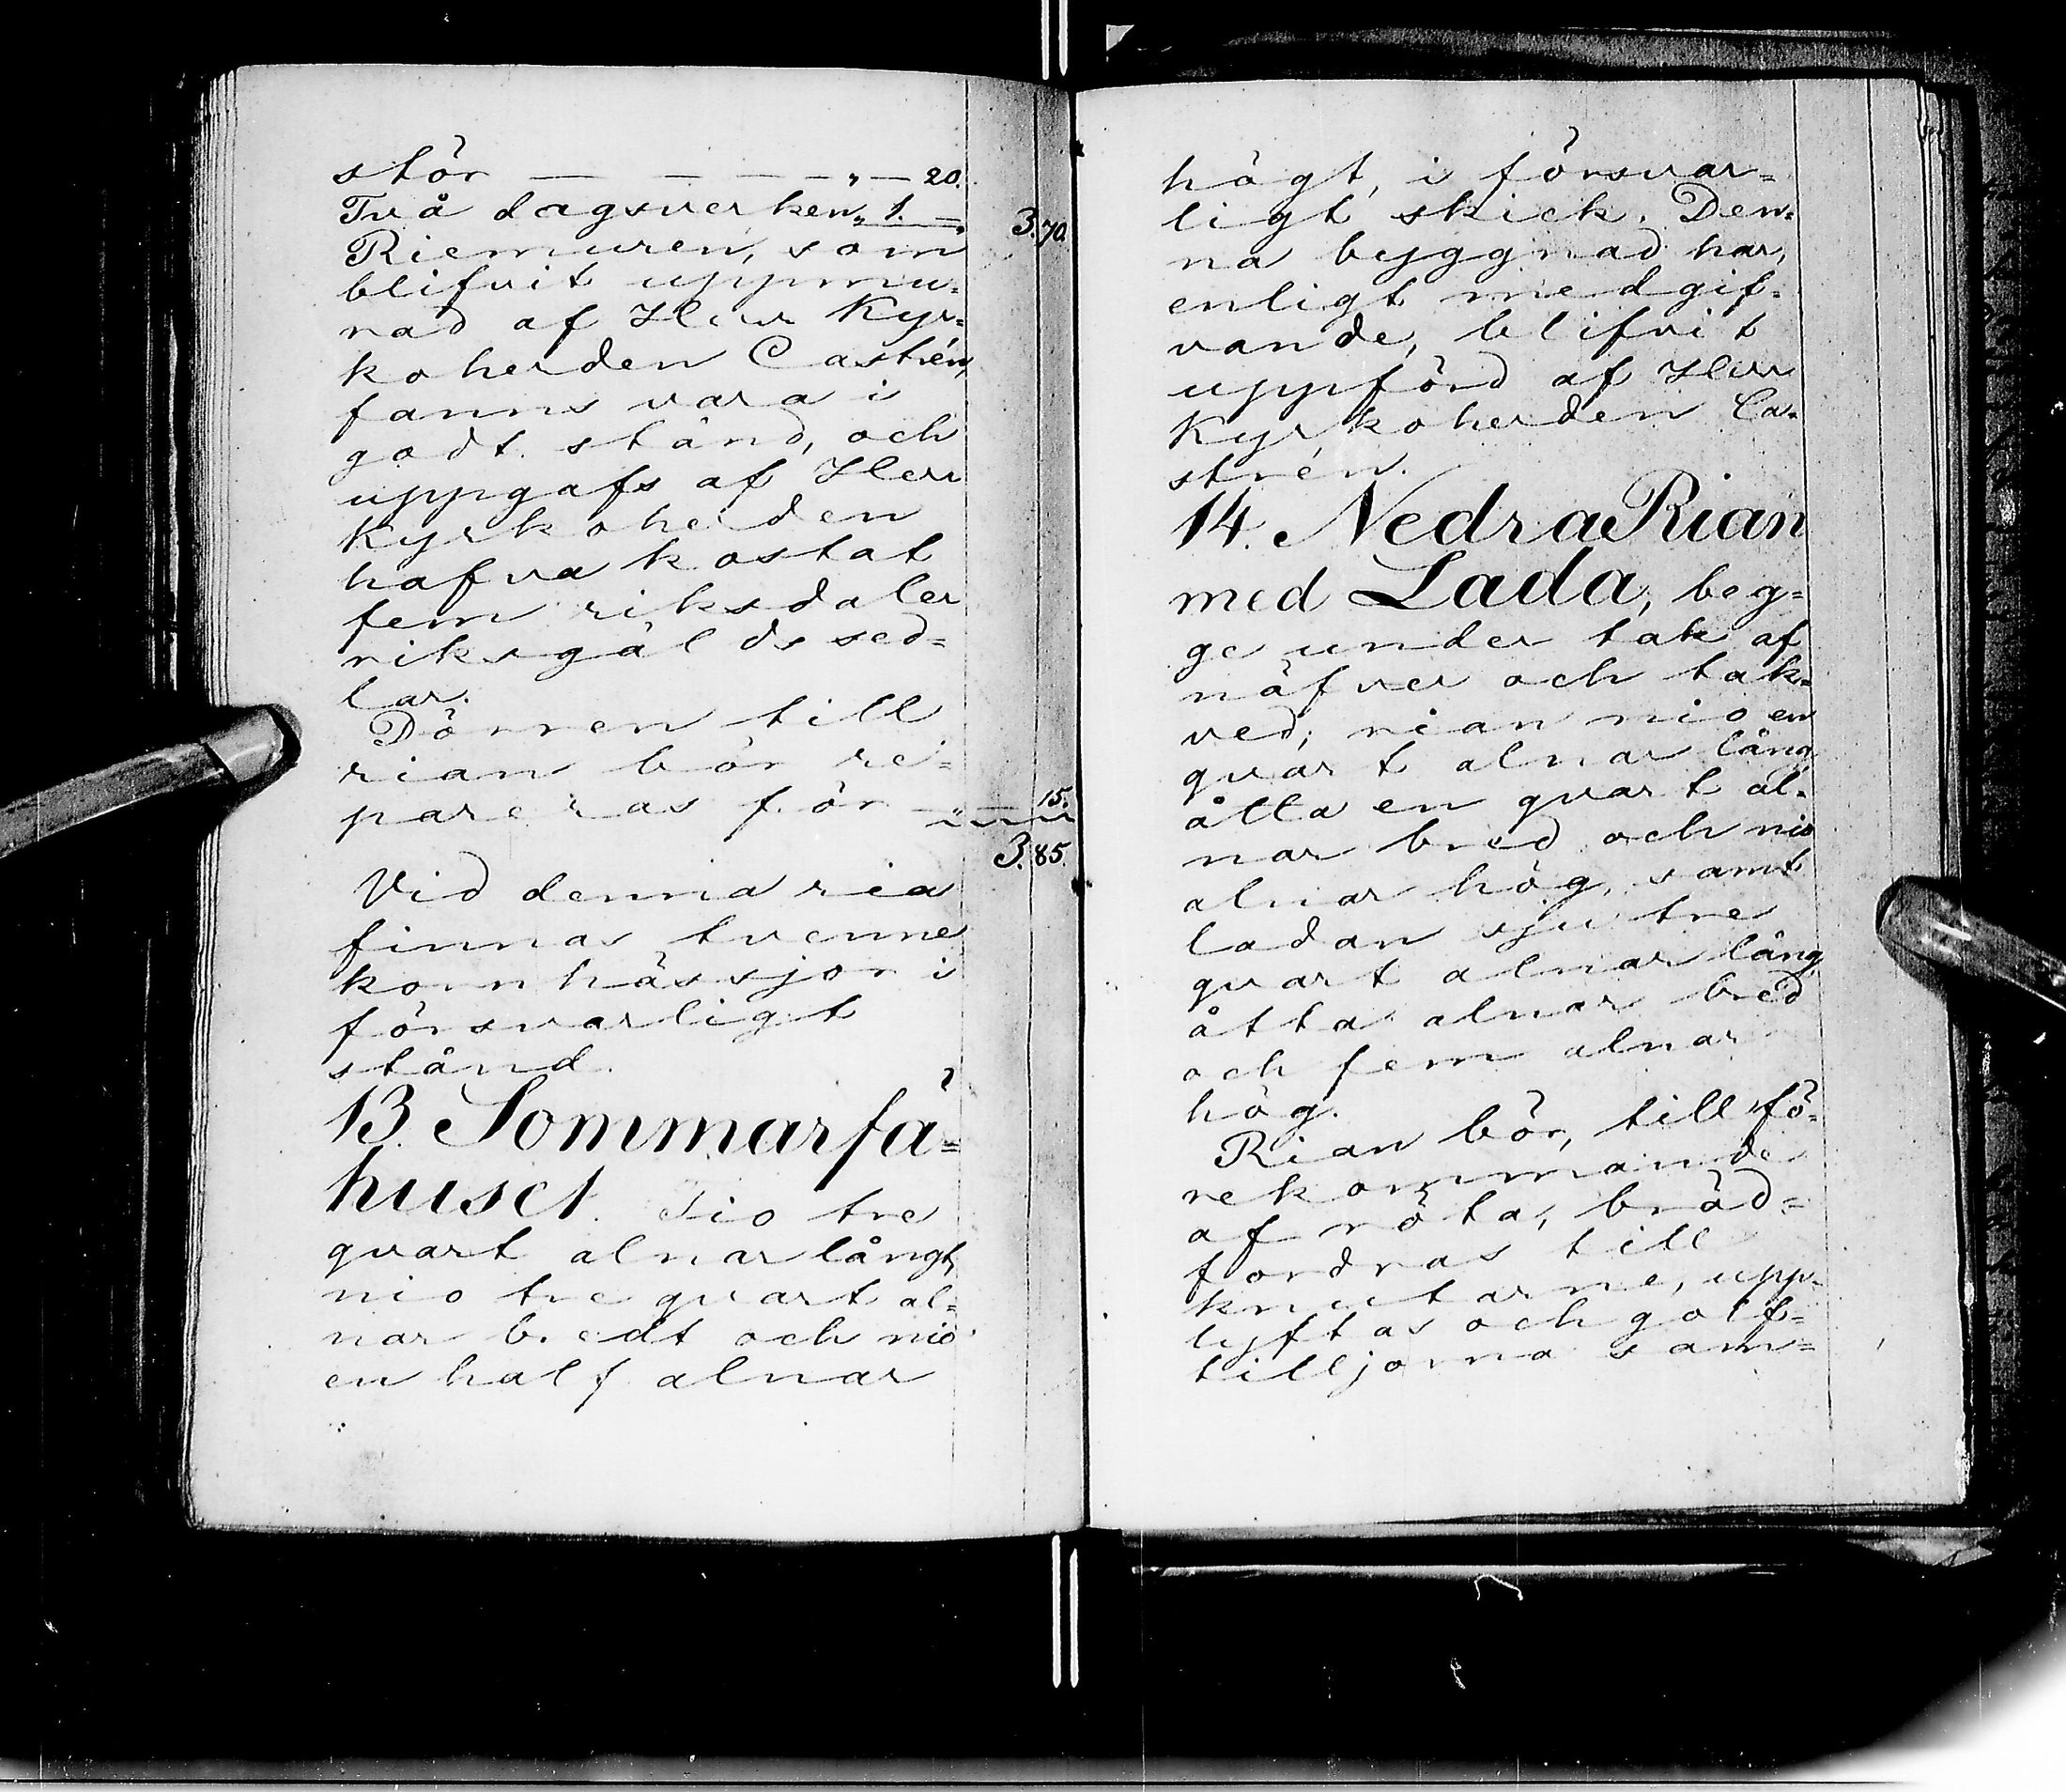 stör — — — — „ — 20.
Två dagsverken „ 1. — 3.70.
Riemuren, som
blifvit uppmu=
rad af Herr Kyr=
koherden Castrén,
fanns vara i
godt stånd, och
uppgafs af Herr
Kyrkoherden
hafva kostat
fem riksdaler
riksgälds sed=
lar.
Dörren till
rian bör re=
pareras för — „ — 15.
3.85.
Vid denna ria
finnas tvenne
kornhässjor i
försvarligt
stånd.
13. Sommarfä=
huset. Tio tre
qvart alnar långt,
nio tre qvart al=
nar bredt och nio
en half alnar
högt, i försvar=
ligt skick. Den=
na byggnad har,
enligt medgif=
vande, blifvit
uppförd af Herr
Kyrkoherden Ca=
strén.
14. Nedra Rian
med Lada, beg=
ge under tak af
näfver och tak=
ved; rian nio en
qvart alnar lång
åtta en qvart al=
nar bred och nio
alnar hög, samt
ladan sju tre
qvart alnar lång,
åtta alnar bred
och fem alnar
hög.
Rian bör, till fö=
rekommande
af röta, bräd=
fordras till
knutarne, upp=
lyftas och golf=
tilljorna sam=